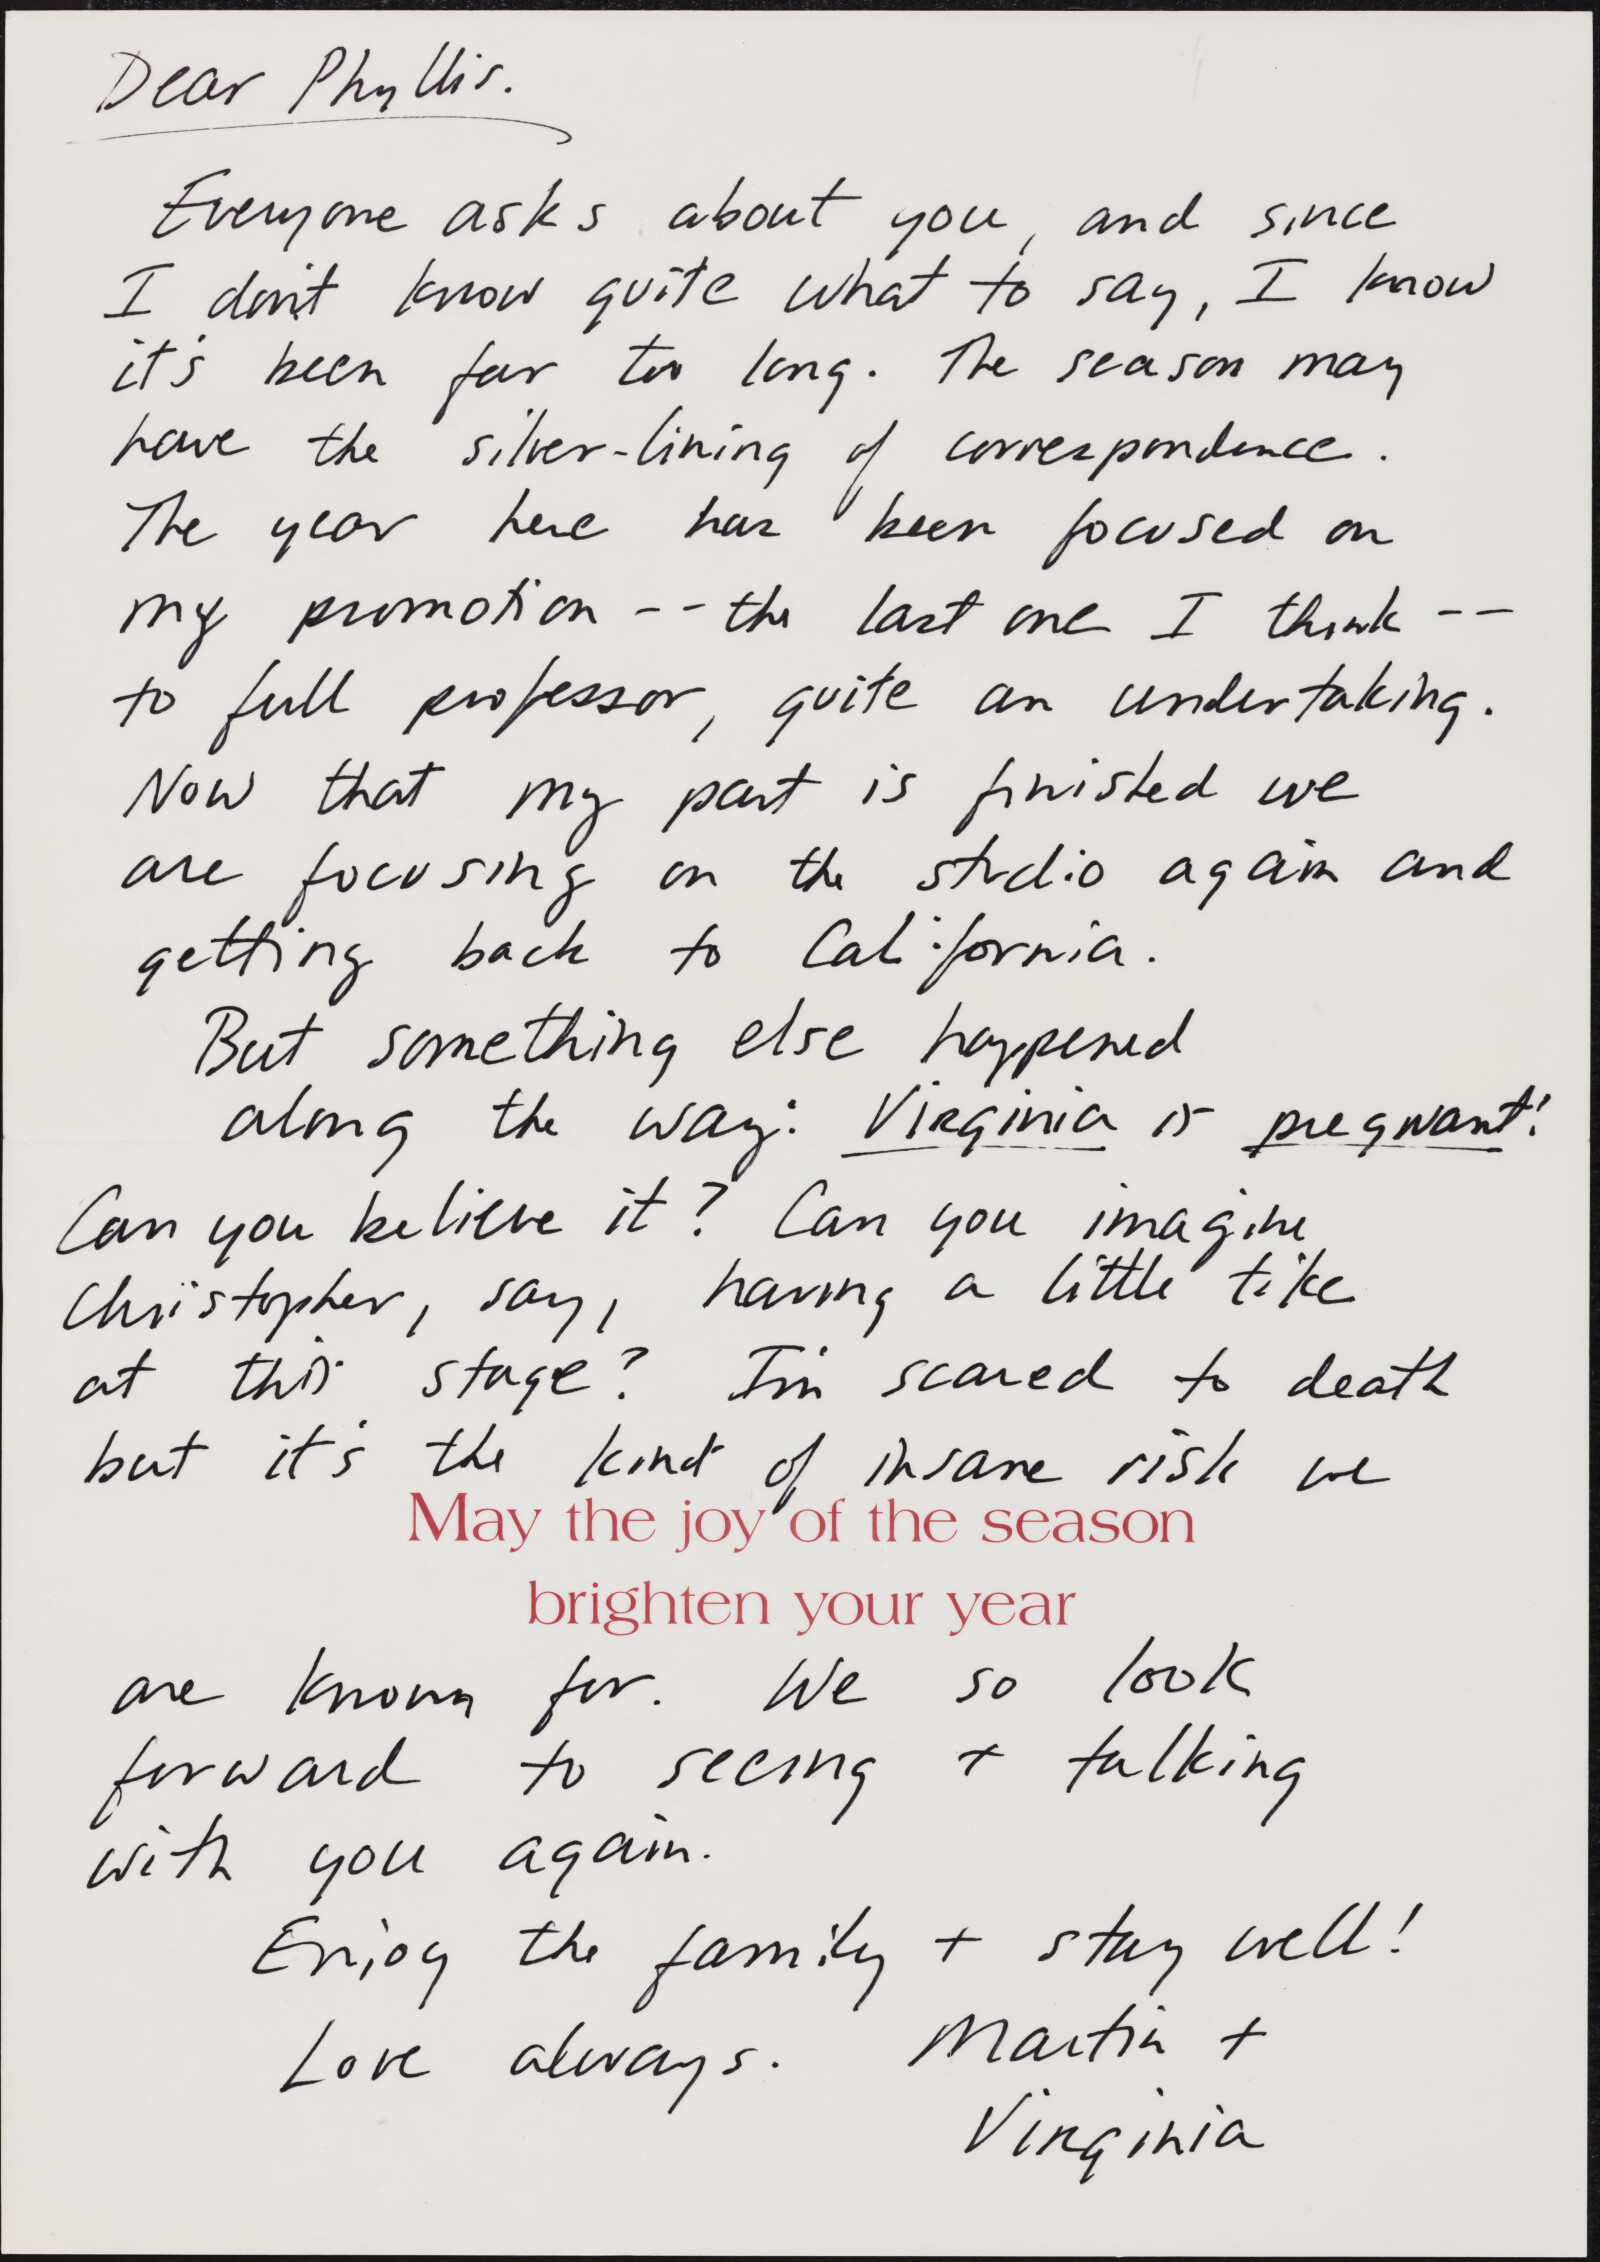 Dear Phyllis.
Everyone asks about you, and since
I don't know quite what to say, I know
it's been far too long. The season may
have the silver-lining of correspondence.
The year here has been focused on
my promotion -- the last one I think --
to full professor, quite an undertaking.
Now that my part is finished we
are focusing on the studio again and
getting back to California.
But something else happened
along the way: Virginia is pregnant!
Can you believe it? Can you imagine
Christopher, say, having a little tike
at this stage? I'm scared to death
but it's the kind of insane risk we
May the joy of the season
brighten your year
are known for. We so look
forward to seeing + talking
with you again.
Enjoy the family + stay well!
Love always. Martin +
Virginia